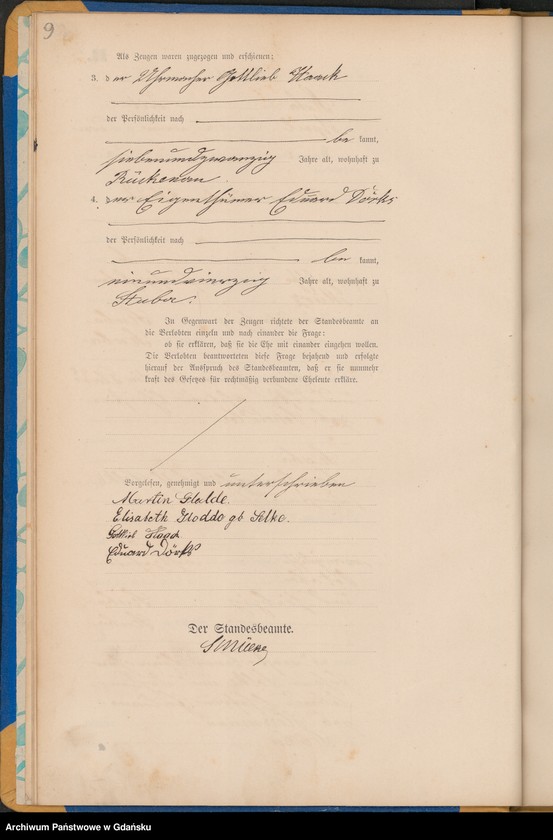 9
Als Zeugen waren zugezogen und erschienen:
3. der Uhrmacher Gottlieb Haack
der Persönlichkeit nach
be kannt,
siebenundzwanzig Jahre alt, wohnhaft zu
Rückenau.
4. der Eigenthümer Eduard Dörks
der Persönlichkeit nach
be kannt,
einundvierzig Jahre alt, wohnhaft zu
Stuba.
In Gegenwart der Zeugen richtete der Standesbeamte an
die Verlobten einzeln und nach einander die Frage:
ob sie erklären, daß sie die Ehe mit einander eingehen wollen.
Die Verlobten beantworteten diese Frage bejahend und erfolgte
hierauf der Ausspruch des Standesbeamten, daß er sie nunmehr
kraft des Gesetzes für rechtmäßig verbundene Eheleute erkläre.
Vorgelesen, genehmigt und unterschrieben
Martin
Elisabeth gb Selke.
Gottlieb
Eduard Dörks
Der Standesbeamte.
Archiwum Państwowe w Gdańsku